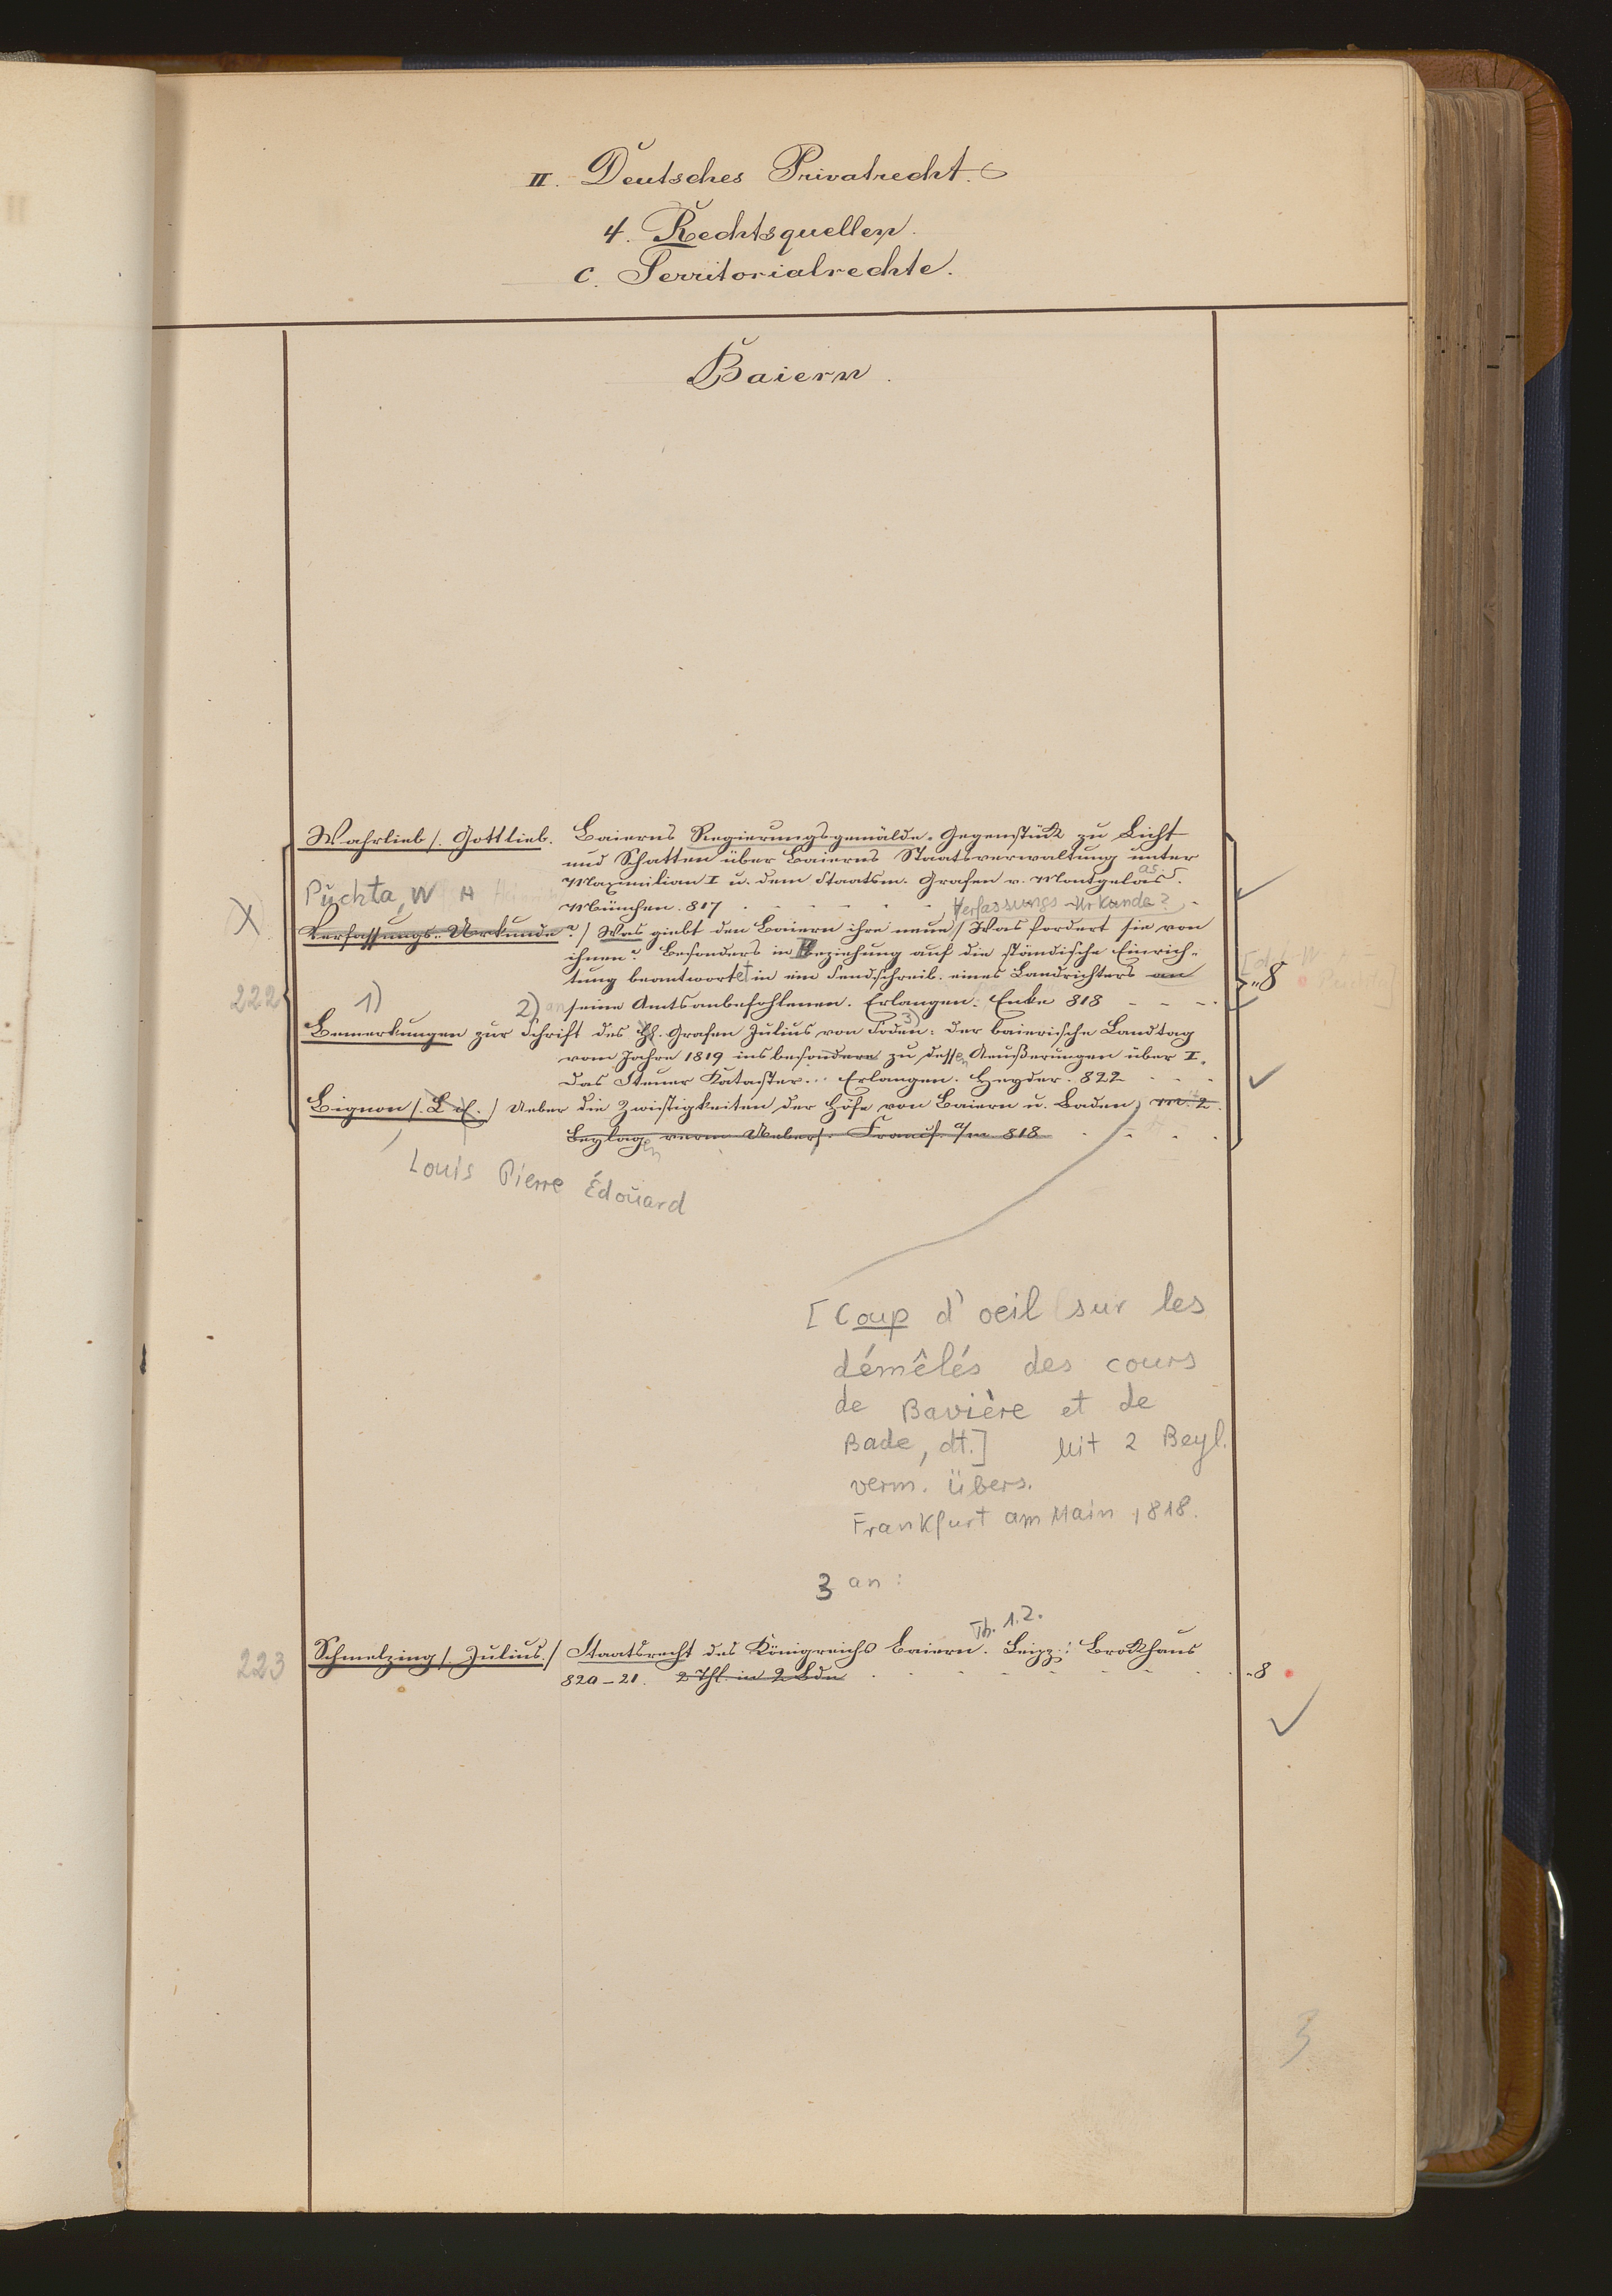 II. Deutsches Privatrecht.
4. Rechtsquellen.
c. Territorialrechte.
Baiern.
Wahrlieb /. Gottlieb. Baierns Regierungsgemälde. Gegenstück zu Licht
und Schatten über Baierns Staatsverwaltung unter
Maximilian I u. dem Staatsm. Grafen v. Montgelas.
as
Puchta, W H
München. 817
Verfassungs-Urkunde?
X
Verfassungs-Urkunde?/ Was giebt den Baiern ihre neue / Was fordert sie von
ihnen? Besonders in Beziehung auf die ständische Einrich-
tung beantwortet in ein Sendschreib. eines Landrichters an
-8
222
1)
2) an seine Amtsanbefohlenen. Erlangen: Enke 818
3)
Bemerkungen zur Schrift des H. Grafen Julius von Soden: der baierische Landtag
vom Jahre 1819 insbesondere zu dessen Aeußerungen über I.
das Steuer Kataster... Erlangen. Heyder. 822
Bignon /. L. /. Ueber die Zwistigkeiten der Höfe von Baiern u. Baden, m. 2.
Beylagen verm Uebers. Francf. a/m 818
Louis Pierre Édouard
[Coup d'oeil sur les
démêlés des cours
de Bavière et de
Bade, dt.] Mit 2 Beyl.
verm. Übers.
Frankfurt am Main 1818.
3 an:
Th. 1.2.
223
Schmelzing /. Julius./ Staatsrecht des Königreichs Baiern. Leipz.: Brokhaus
820-21. 2 Thl. in 2 Bdn
-8
3